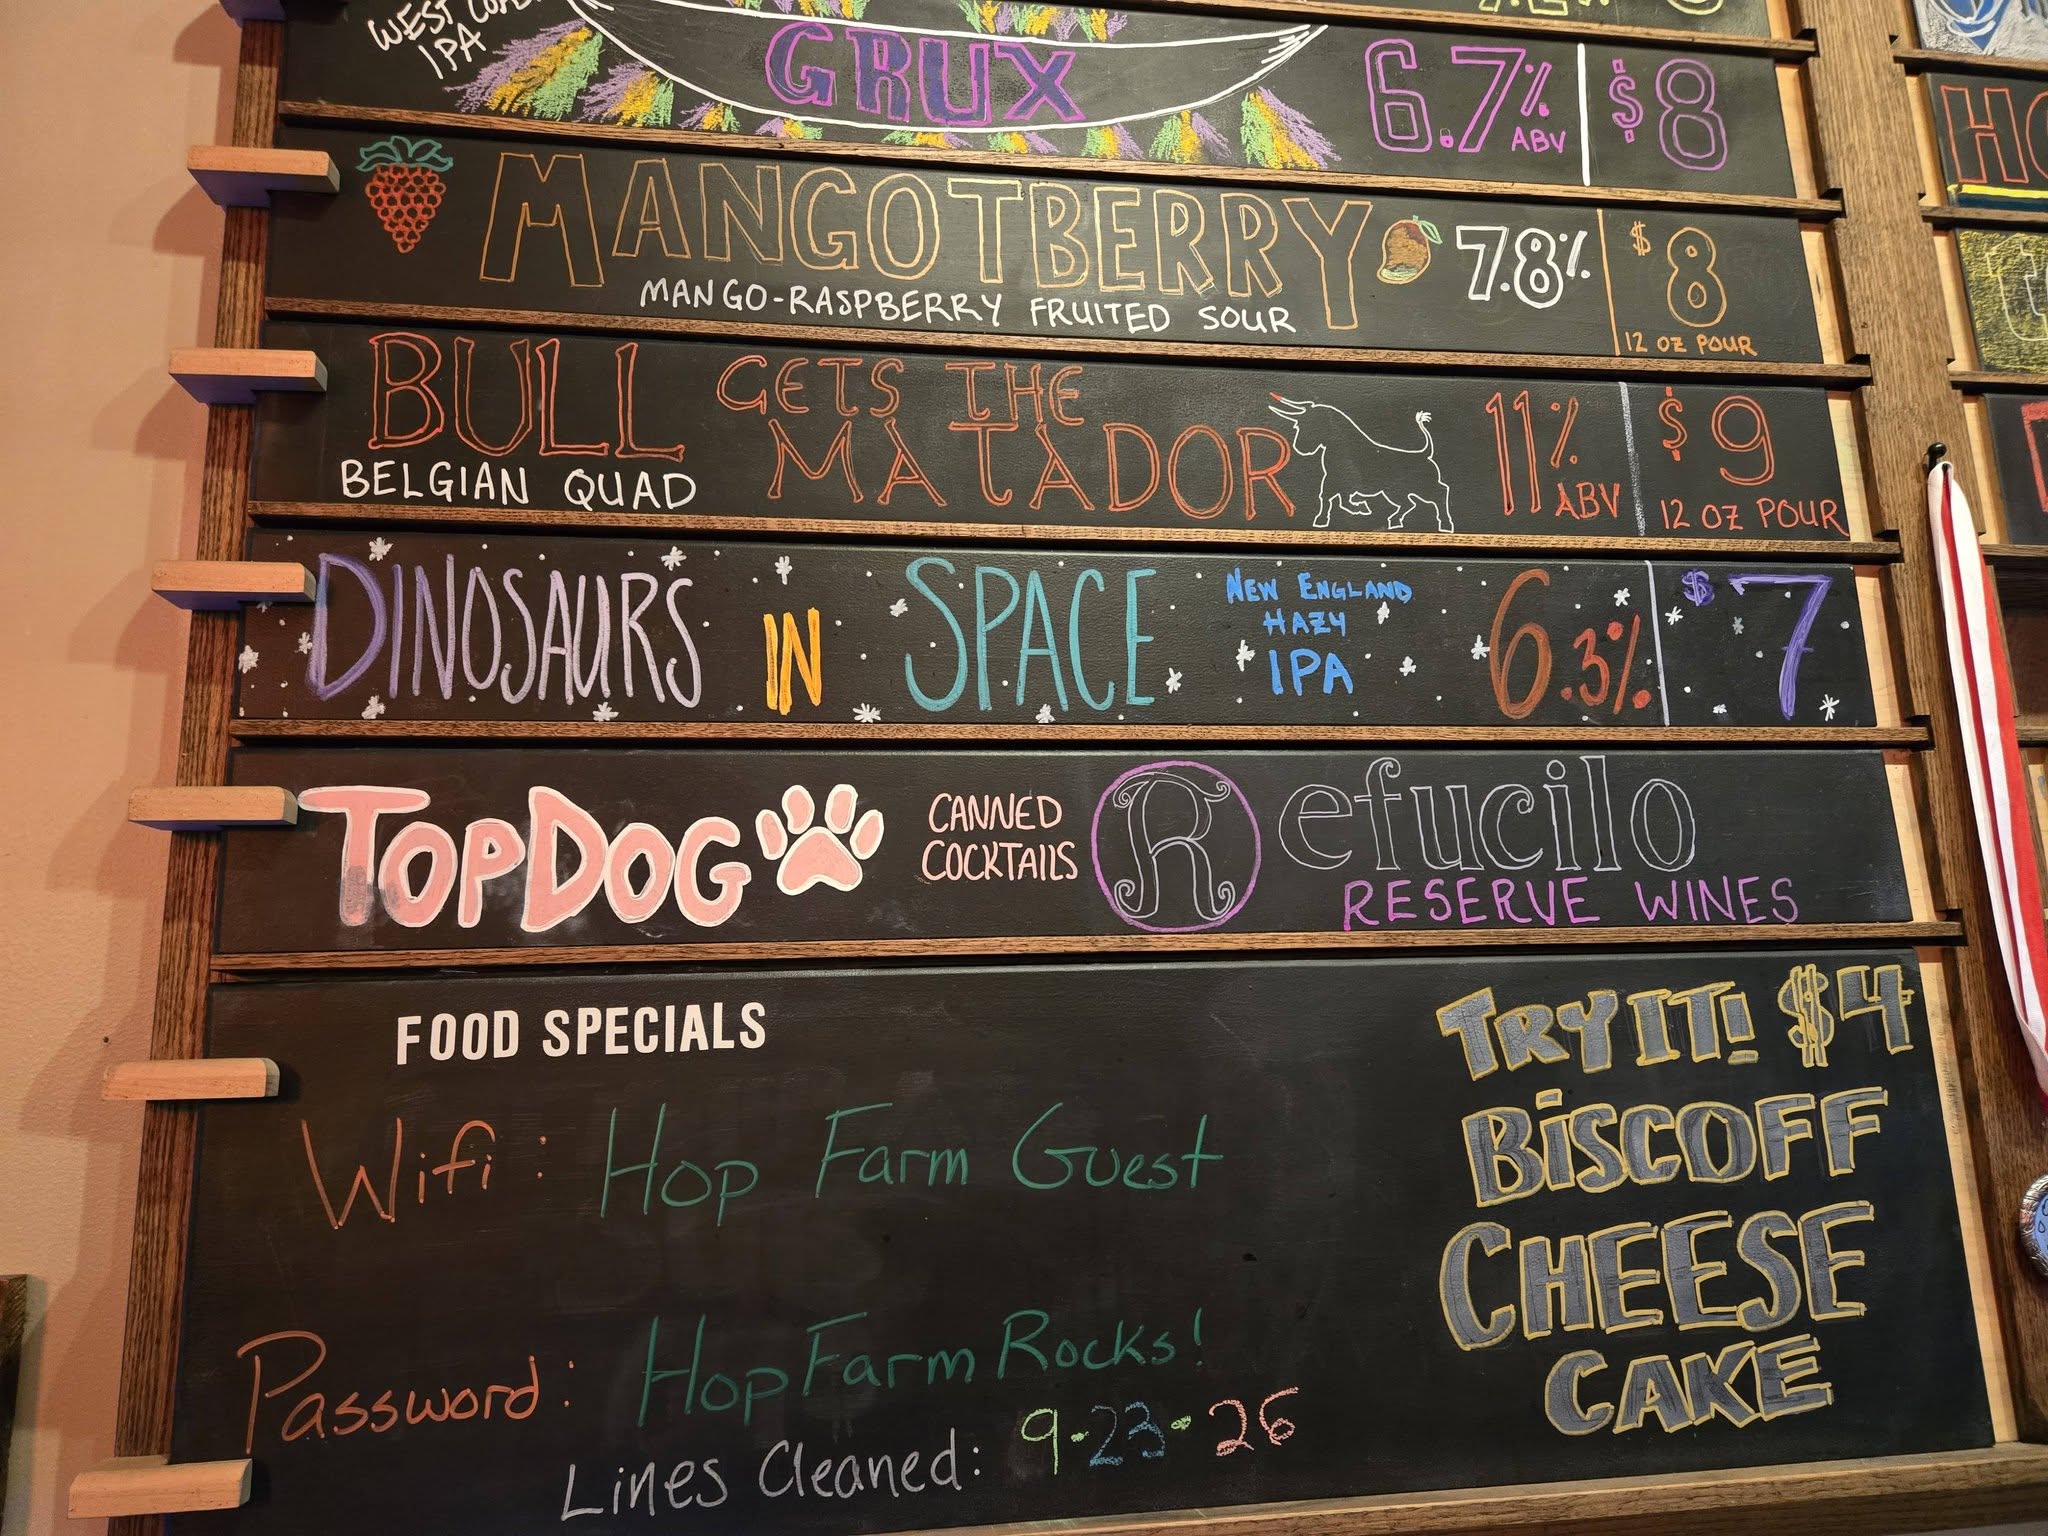 WEST COAST
IPA
GRUX 6.7% ABV $8
MANGOTBERRY 7.8% $8
MANGO-RASPBERRY FRUITED SOUR 12 OZ POUR
BULL GETS THE MATADOR 11% ABV $9
BELGIAN QUAD 12 OZ POUR
DINOSAURS IN SPACE NEW ENGLAND HAZY IPA 6.3% $7
TOPDOG CANNED COCKTAILS R Refucilo
RESERVE WINES
FOOD SPECIALS
Wifi: Hop Farm Guest
Password: HopFarmRocks!
Lines Cleaned: 9-23-26
TRY IT! $4
BISCOFF
CHEESE
CAKE